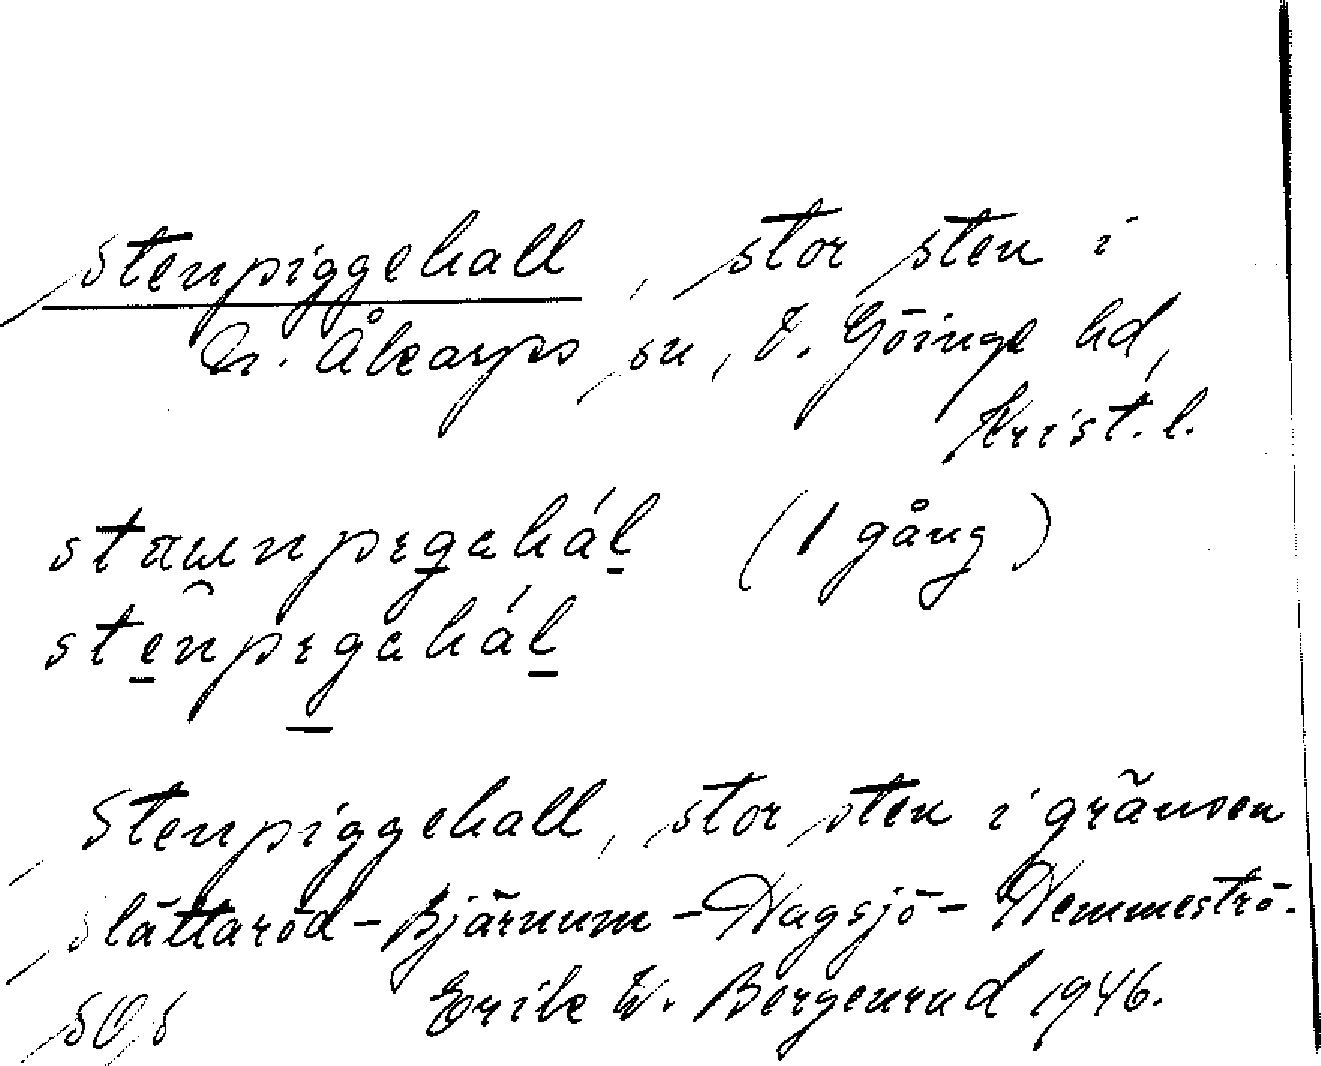 Stenpiggehall, stor sten i
N. Åkarps sn, V. Göinge hd,
Krist. l.
(1 gång)
Stenpiggehall, stor sten i gränsen
Slättaröd - Bjärnum - Hagsjö - Hemmeströ.
Erik W. Bergenrud 1946.